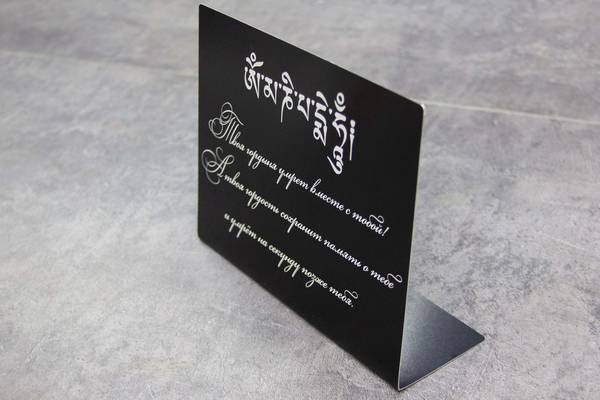 ༀམཎིཔདྨེཧཱུྃ
Твоя гордыня умрет вместе с тобой!
А твоя гордость сохранит память о тебе
и умрёт на секунду позже тебя.